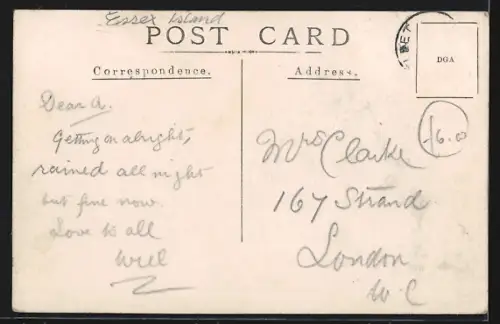 Essex Island
POST CARD
Correspondence.
Address.
DGA
Dear A.
Getting on alright,
rained all night
but fine now.
Love to all
Will
Mrs Clarke
167 Strand
London
W.C